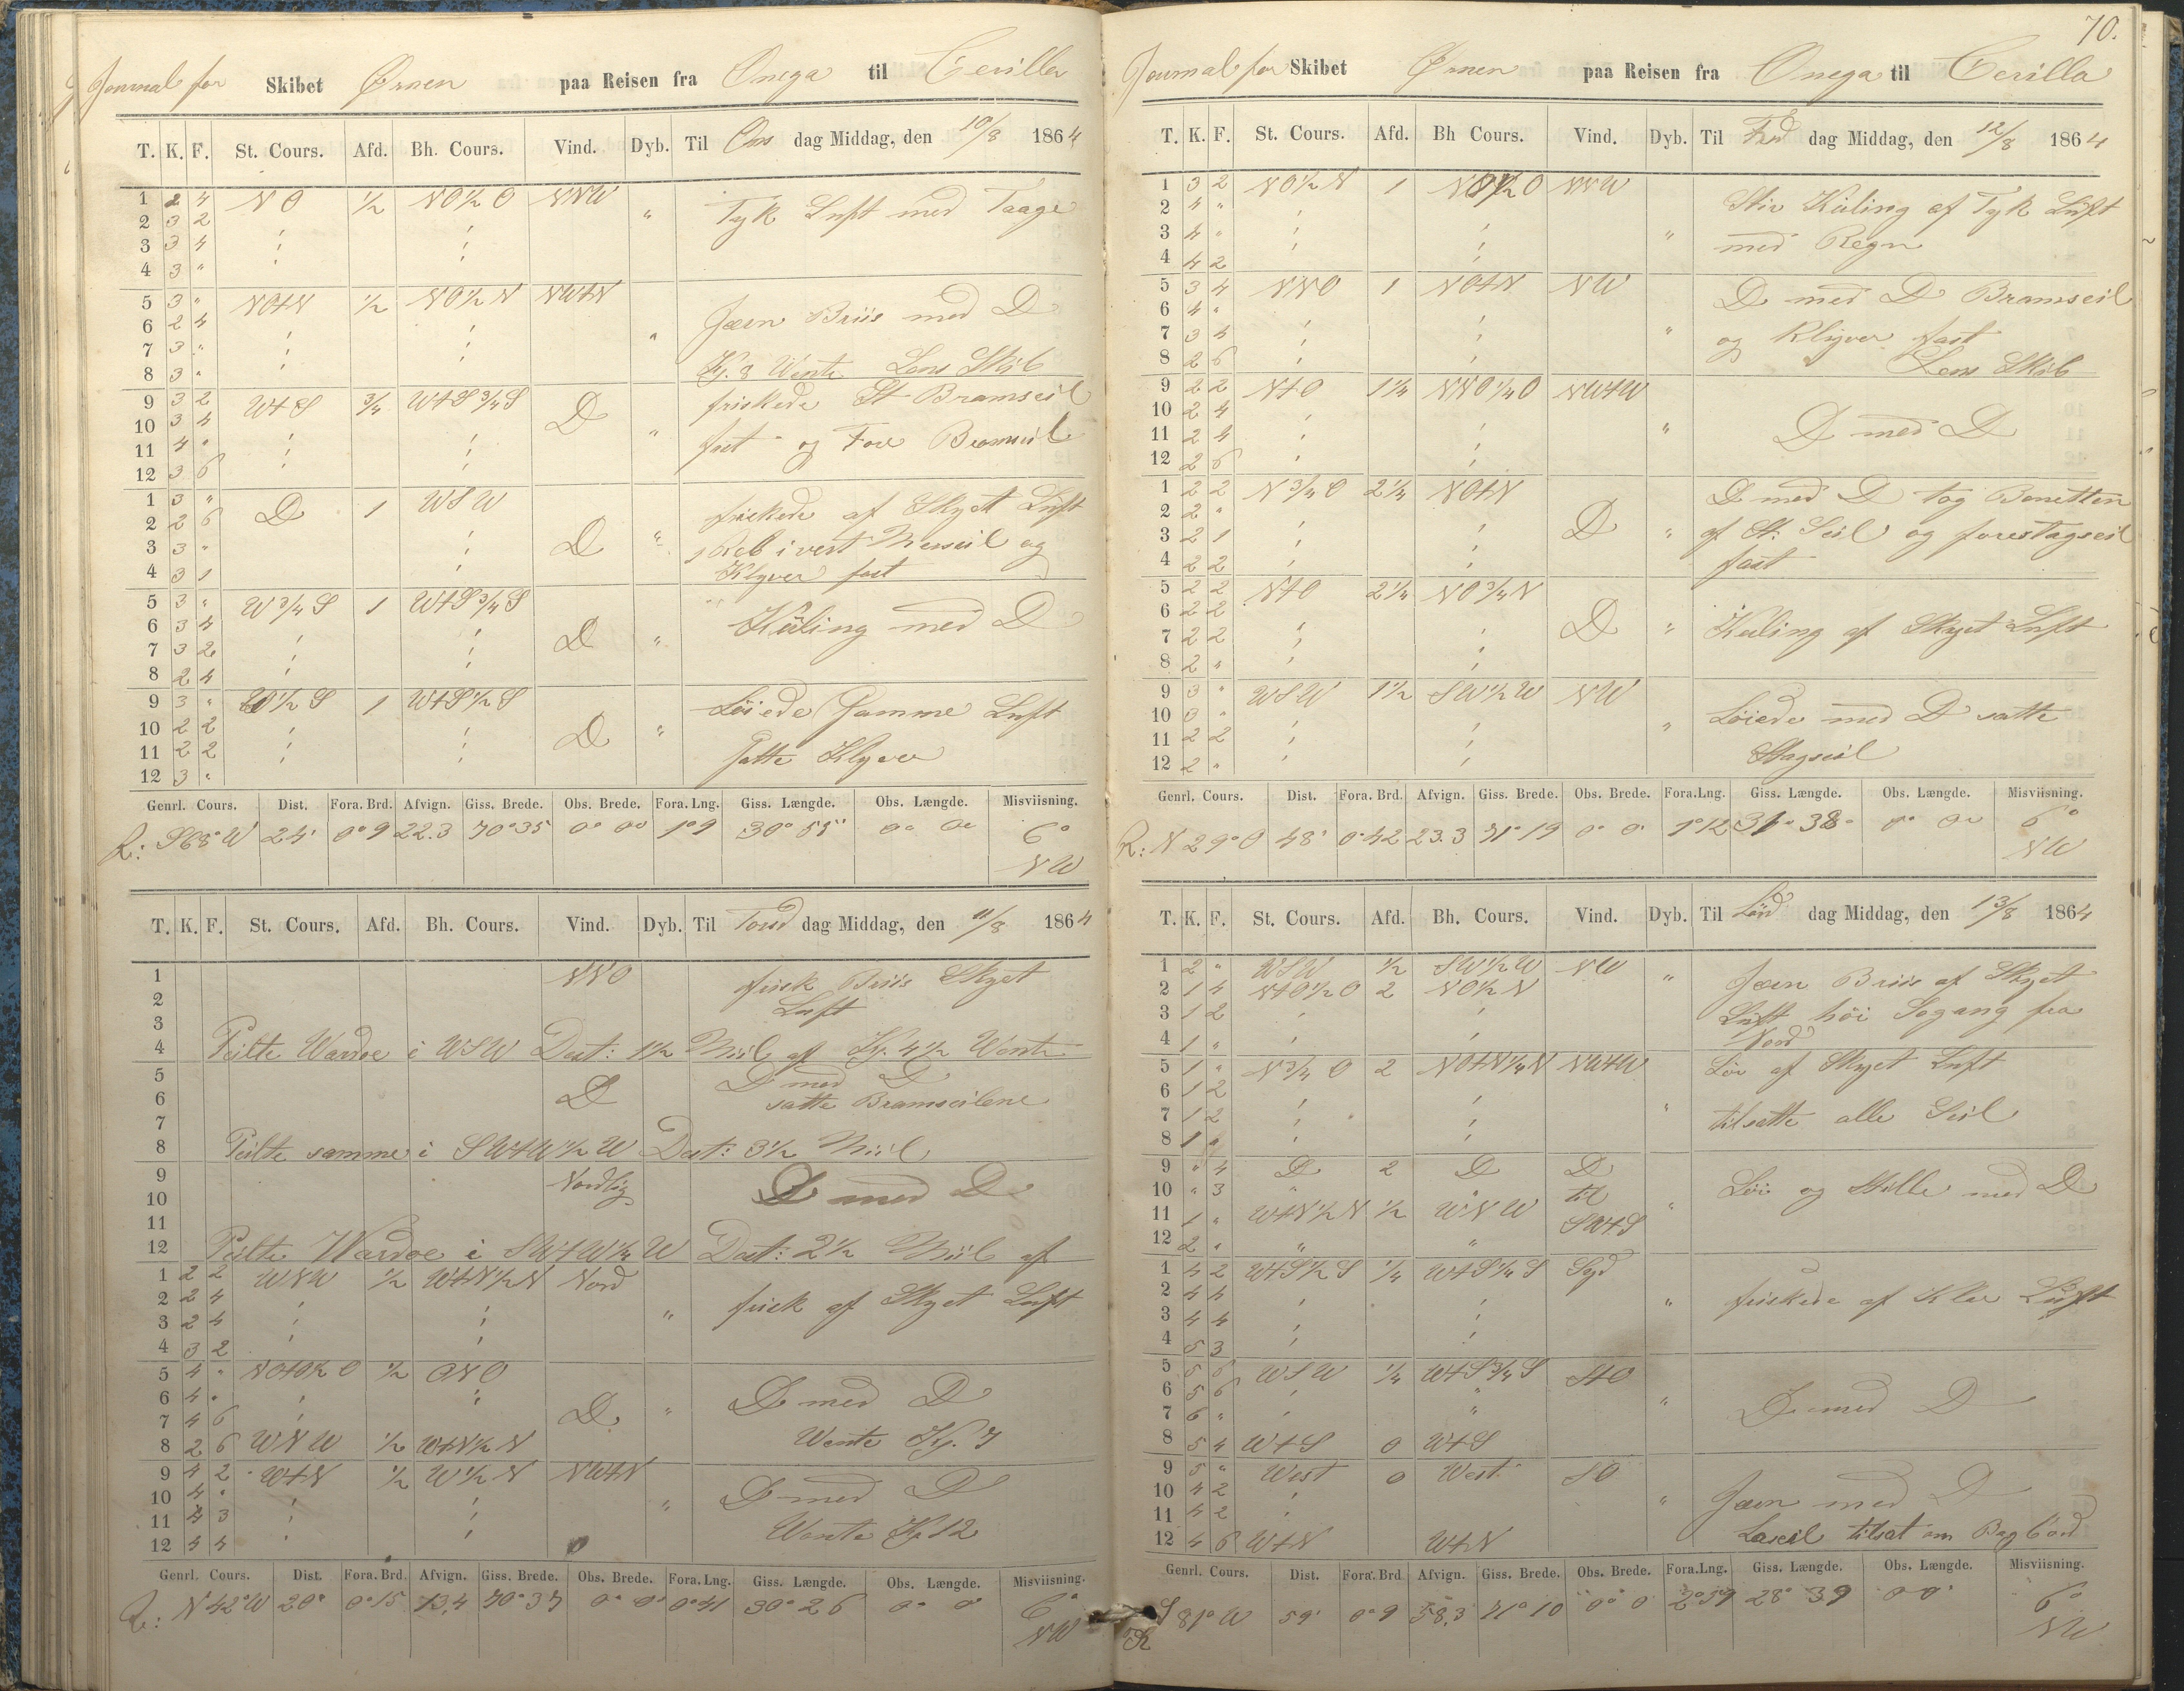 Journal for Skibet Ørnen paa Reisen fra Onega til Cerilla
T. K. F. St. Cours. Afd. Bh. Cours. Vind. Dyb. Til Ons dag Middag, den 10/8 1864
1 2 4 NO 1/2 NO 1/2 O NNW Tyk Luft med Taage
2 3 2 " "
3 3 4 " "
4 3 " " "
5 3 " NO+N 1/2 NO 1/2 N NW+N Jævn Briis med D
6 2 4 " "
7 3 " " "
8 3 " " Kl. 8 Vente Lens Skib
9 3 2 W+S 3/4 W+S 3/4 S D friskede St Bramseil
10 3 4 " "
11 4 " " " fast og Fore Bramseil
12 3 6 " "
1 3 " D 1 WSW D friskede af Skyet Luft
2 2 6
3 3 " " 1 Reb i vert Merseil og
4 3 1 " Klyver fast
5 3 " W 3/4 S 1 W+S 3/4 S D Kuling med D
6 3 4 " "
7 3 2 " "
8 2 4 " "
9 3 " W 1/2 S 1 W+S 1/2 S D Löiede Samme Luft
10 2 2 " "
11 2 2 " " Satte Klyver
12 3 "
Genrl. Cours. Dist. Fora. Brd. Afvign. Giss. Brede. Obs. Brede. Fora. Lng. Giss. Længde. Obs. Længde. Misviisning.
R: S68°W 24' 0°9 22.3 70°35 0° 00 1°9 30° 55" 0° 0° 6°
NW
T. K. F. St. Cours. Afd. Bh. Cours. Vind. Dyb. Til Torsd dag Middag, den 11/8 1864
1 NNO frisk Briis Skyet
2 Luft
3
4 Peilte Wardoe i WSW Dist: 1 1/2 Miil af Kl. 4 1/2 Vente
5 D med D
6 D satte Bramseilene
7
8 Peilte samme i SW+W 1/2 W Dist: 3 1/2 Miil
9 Nordlig D med D
10
11
12 Peilte Wardoe i SW+W 1/4 W Dist: 2 1/2 Miil af
1 2 2 WNW 1/2 W+N 1/2 N Nord
2 2 4 " " frisk af Skyet Luft
3 2 4 " "
4 3 2 " "
5 4 " NO+O 1/2 O 1/2 ONO
6 4 " " " D D med D
7 4 6 " "
8 2 6 WNW 1/2 W+N 1/2 N Vente Kl. 7
9 4 2 W+N 1/2 W 1/2 N NW+N D med D
10 4 " " "
11 4 3 " " Vente Kl 12
12 4 4 " "
Genrl. Cours. Dist. Fora. Brd. Afvign. Giss. Brede. Obs. Brede. Fora. Lng. Giss. Længde. Obs. Længde. Misviisning.
R: N 42°W 20° 0°15 13,4 70°37 0° 0° 0°41 30° 26 0° 0° 6°
NW
70.
Journal for Skibet Ørnen paa Reisen fra Onega til Cerilla
T. K. F. St. Cours. Afd. Bh Cours. Vind. Dyb. Til Fred dag Middag, den 12/8 1864
1 3 2 NO 1/2 N 1 NO 1/2 O NNW Stiv Kuling af Tyk Luft
2 4 " " "
3 4 " " " med Regn
4 4 2 " "
5 3 4 NNO 1 NO+N NW D med D Bramseil
6 4 "
7 3 4 " " og Klyver fast
8 2 6 " " Lens Skib
9 2 2 N+O 1 1/4 NNO 1/4 O NW+W
10 2 4 " " D med D
11 2 4 " "
12 2 6 " "
1 2 2 N 3/4 O 2 1/4 NO+N D med D tog Bonetten
2 2 " D
3 2 1 " " af St. Seil og forestagseil
4 2 2 " " fast
5 2 2 N+O 2 1/4 NO 3/4 N
6 2 2 D Kuling af Skyet Luft
7 2 2 " "
8 2 " " "
9 3 " WSW 1 1/2 SW 1/2 W NW
10 3 " " " Löiede med D satte
11 2 2 " "
12 2 " " " Stagseil
Genrl. Cours. Dist. Fora. Brd. Afvign. Giss. Brede. Obs. Brede. Fora. Lng. Giss. Længde. Obs. Længde. Misviisning.
R: N 29°O 48' 0°42 23.3 71°19 0° 0° 1°12 31° 38° 0° 0° 6°
NW
T. K. F. St. Cours. Afd. Bh. Cours. Vind. Dyb. Til Lörd dag Middag, den 13/8 1864
1 2 " WSW 1/2 SW 1/2 W NW Jævn Briis af Skyet
2 1 4 N+O 1/2 O 2 NO 1/2 N
3 1 2 " " Luft höi Sogang fra
4 1 " " Nord
5 1 " N 3/4 O 2 NO+N 1/4 N NW+W Löi af Skyet Luft
6 1 2 " "
7 1 2 " " tilsatte alle Seil
8 1 " " "
9 " 4 D 2 D D
10 " 3 " " til Löi og Stille med D
11 1 " W+N 1/2 N 1/2 WNW SW+S
12 2 " " "
1 4 2 W+S 1/2 S 1/4 W+S 1/4 S Syd
2 4 4 " " friskede af Klar Luft
3 4 4 " "
4 5 3 " "
5 5 6 WSW 1/4 W+S 3/4 S S+O
6 5 6 " " D med D
7 6 " " "
8 5 4 W+S 0 W+S
9 5 " West 0 West SO
10 4 2 " Jævn med D
11 4 2 "
12 4 6 W+N W+N Læseil tilsat om Bagbord
Genrl. Cours. Dist. Fora. Brd Afvign. Giss. Brede. Obs. Brede. Fora. Lng. Giss. Længde. Obs. Længde. Misviisning.
R S 81°W 59' 0°9 58,3 71°10 0° 0 2°59 28° 39 0 0 6°
NW